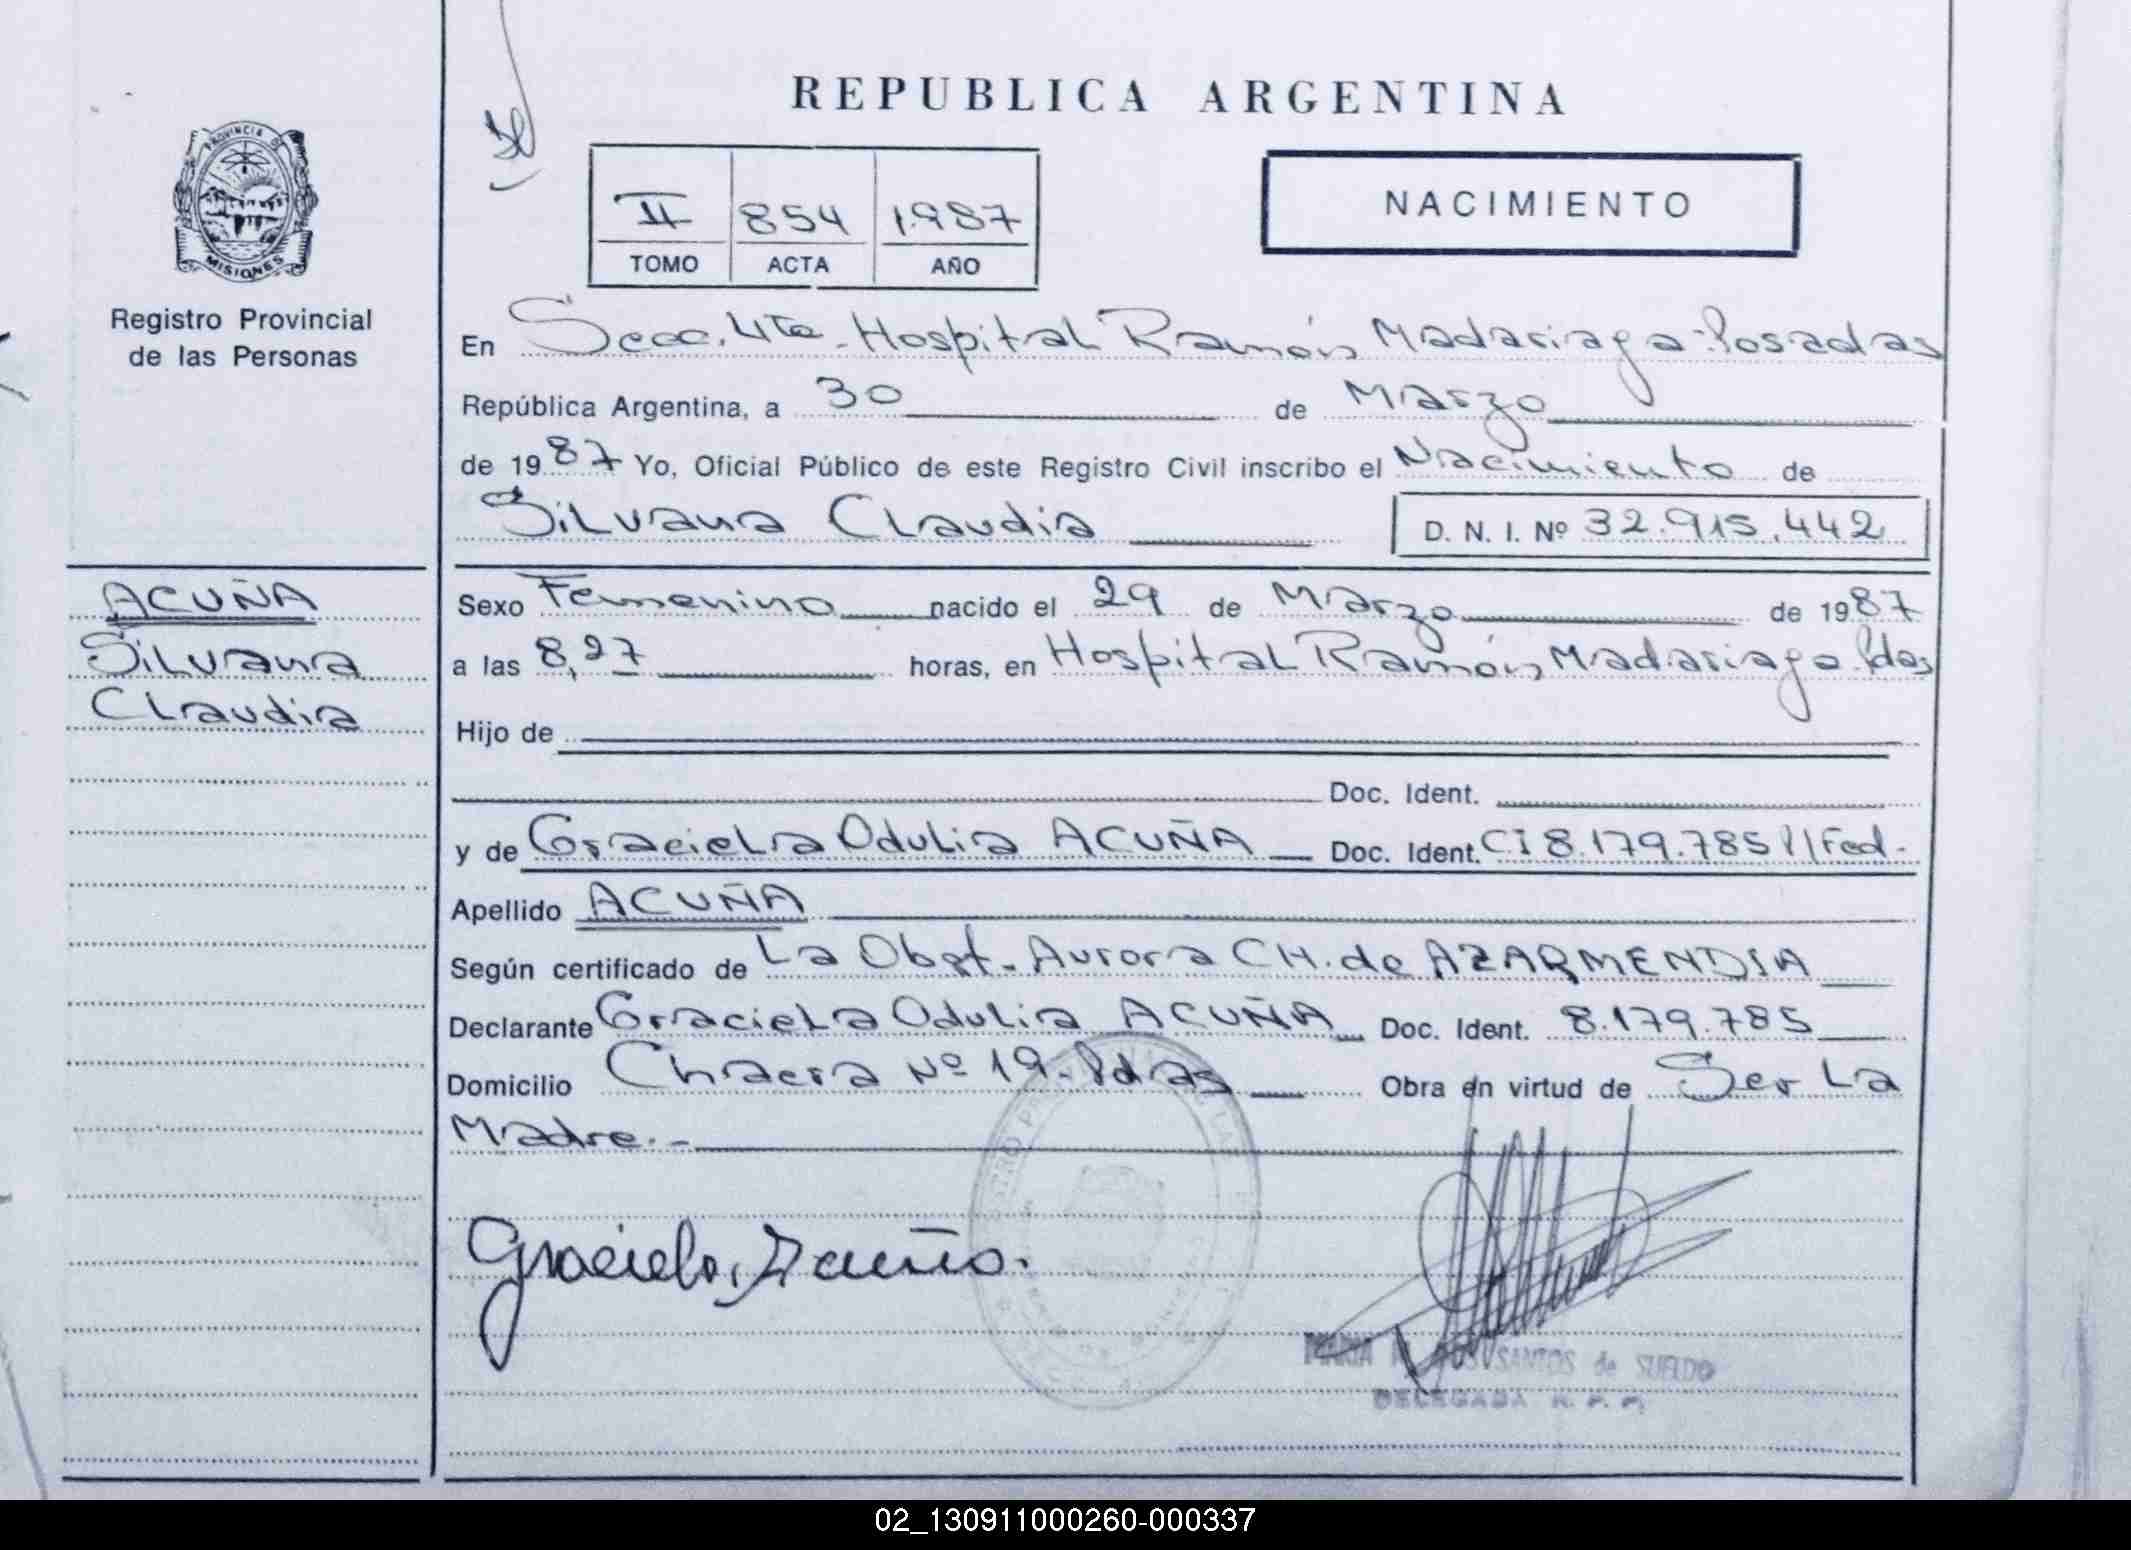 REPUBLICA ARGENTINA
PROVINCIA DE
MISIONES
Registro Provincial
de las Personas
II 854 1.987
TOMO ACTA AÑO
NACIMIENTO
En Secc. 4ta. Hospital Ramón Madariaga-Posadas
República Argentina, a 30 de Marzo
de 1987 Yo, Oficial Público de este Registro Civil inscribo el Nacimiento de
Silvana Claudia D. N. I. Nº 32.915.442
ACUÑA
Silvana
Claudia
Sexo Femenino nacido el 29 de Marzo de 1987
a las 8,27 horas, en Hospital Ramón Madariaga.Pdas
Hijo de
Doc. Ident.
y de Graciela Odulia ACUÑA Doc. Ident. CI 8.179.785 Fed.
Apellido ACUÑA
Según certificado de La Obst. Aurora CH. de AZARMENDIA
Declarante Graciela Odulia ACUÑA Doc. Ident. 8.179.785
Domicilio Chacra Nº 19. Pdas Obra en virtud de Ser La
Madre.-
Graciela Acuña.
MARIA SANTOS de SUELDO
DELEGADA R. P. P.
02_130911000260-000337